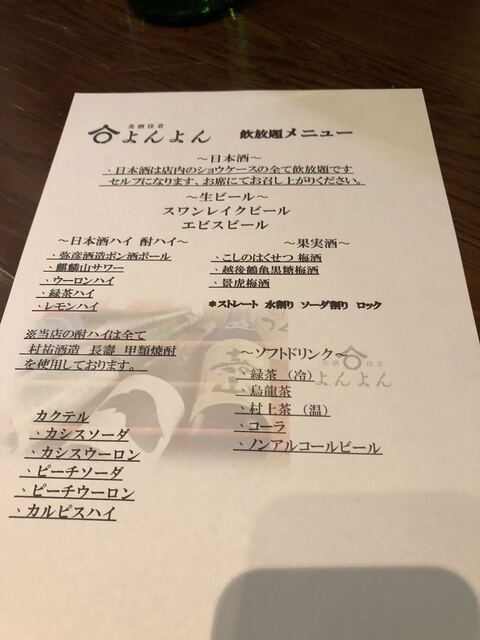 美酒佳肴
よんよん 飲放題メニュー
～日本酒～
、日本酒は店内のショウケースの全て飲放題です
セルフになります、お席にてお召し上がりください。
～生ビール～
スワンレイクビール
エビスビール
～日本酒ハイ 酎ハイ～
、弥彦酒造ポン酒ボール
、麒麟山サワー
、ウーロンハイ
、緑茶ハイ
、レモンハイ
～果実酒～
、こしのはくせつ 梅酒
、越後鶴亀黒糖梅酒
、景虎梅酒
*ストレート 水割り ソーダ割り ロック
※当店の酎ハイは全て
村祐酒造 長壽 甲類焼酎
を使用しております。
～ソフトドリンク～
、緑茶（冷）
、烏龍茶
、村上茶（温）
、コーラ
、ノンアルコールビール
カクテル
、カシスソーダ
、カシスウーロン
、ピーチソーダ
、ピーチウーロン
、カルピスハイ
美酒佳肴
よんよん